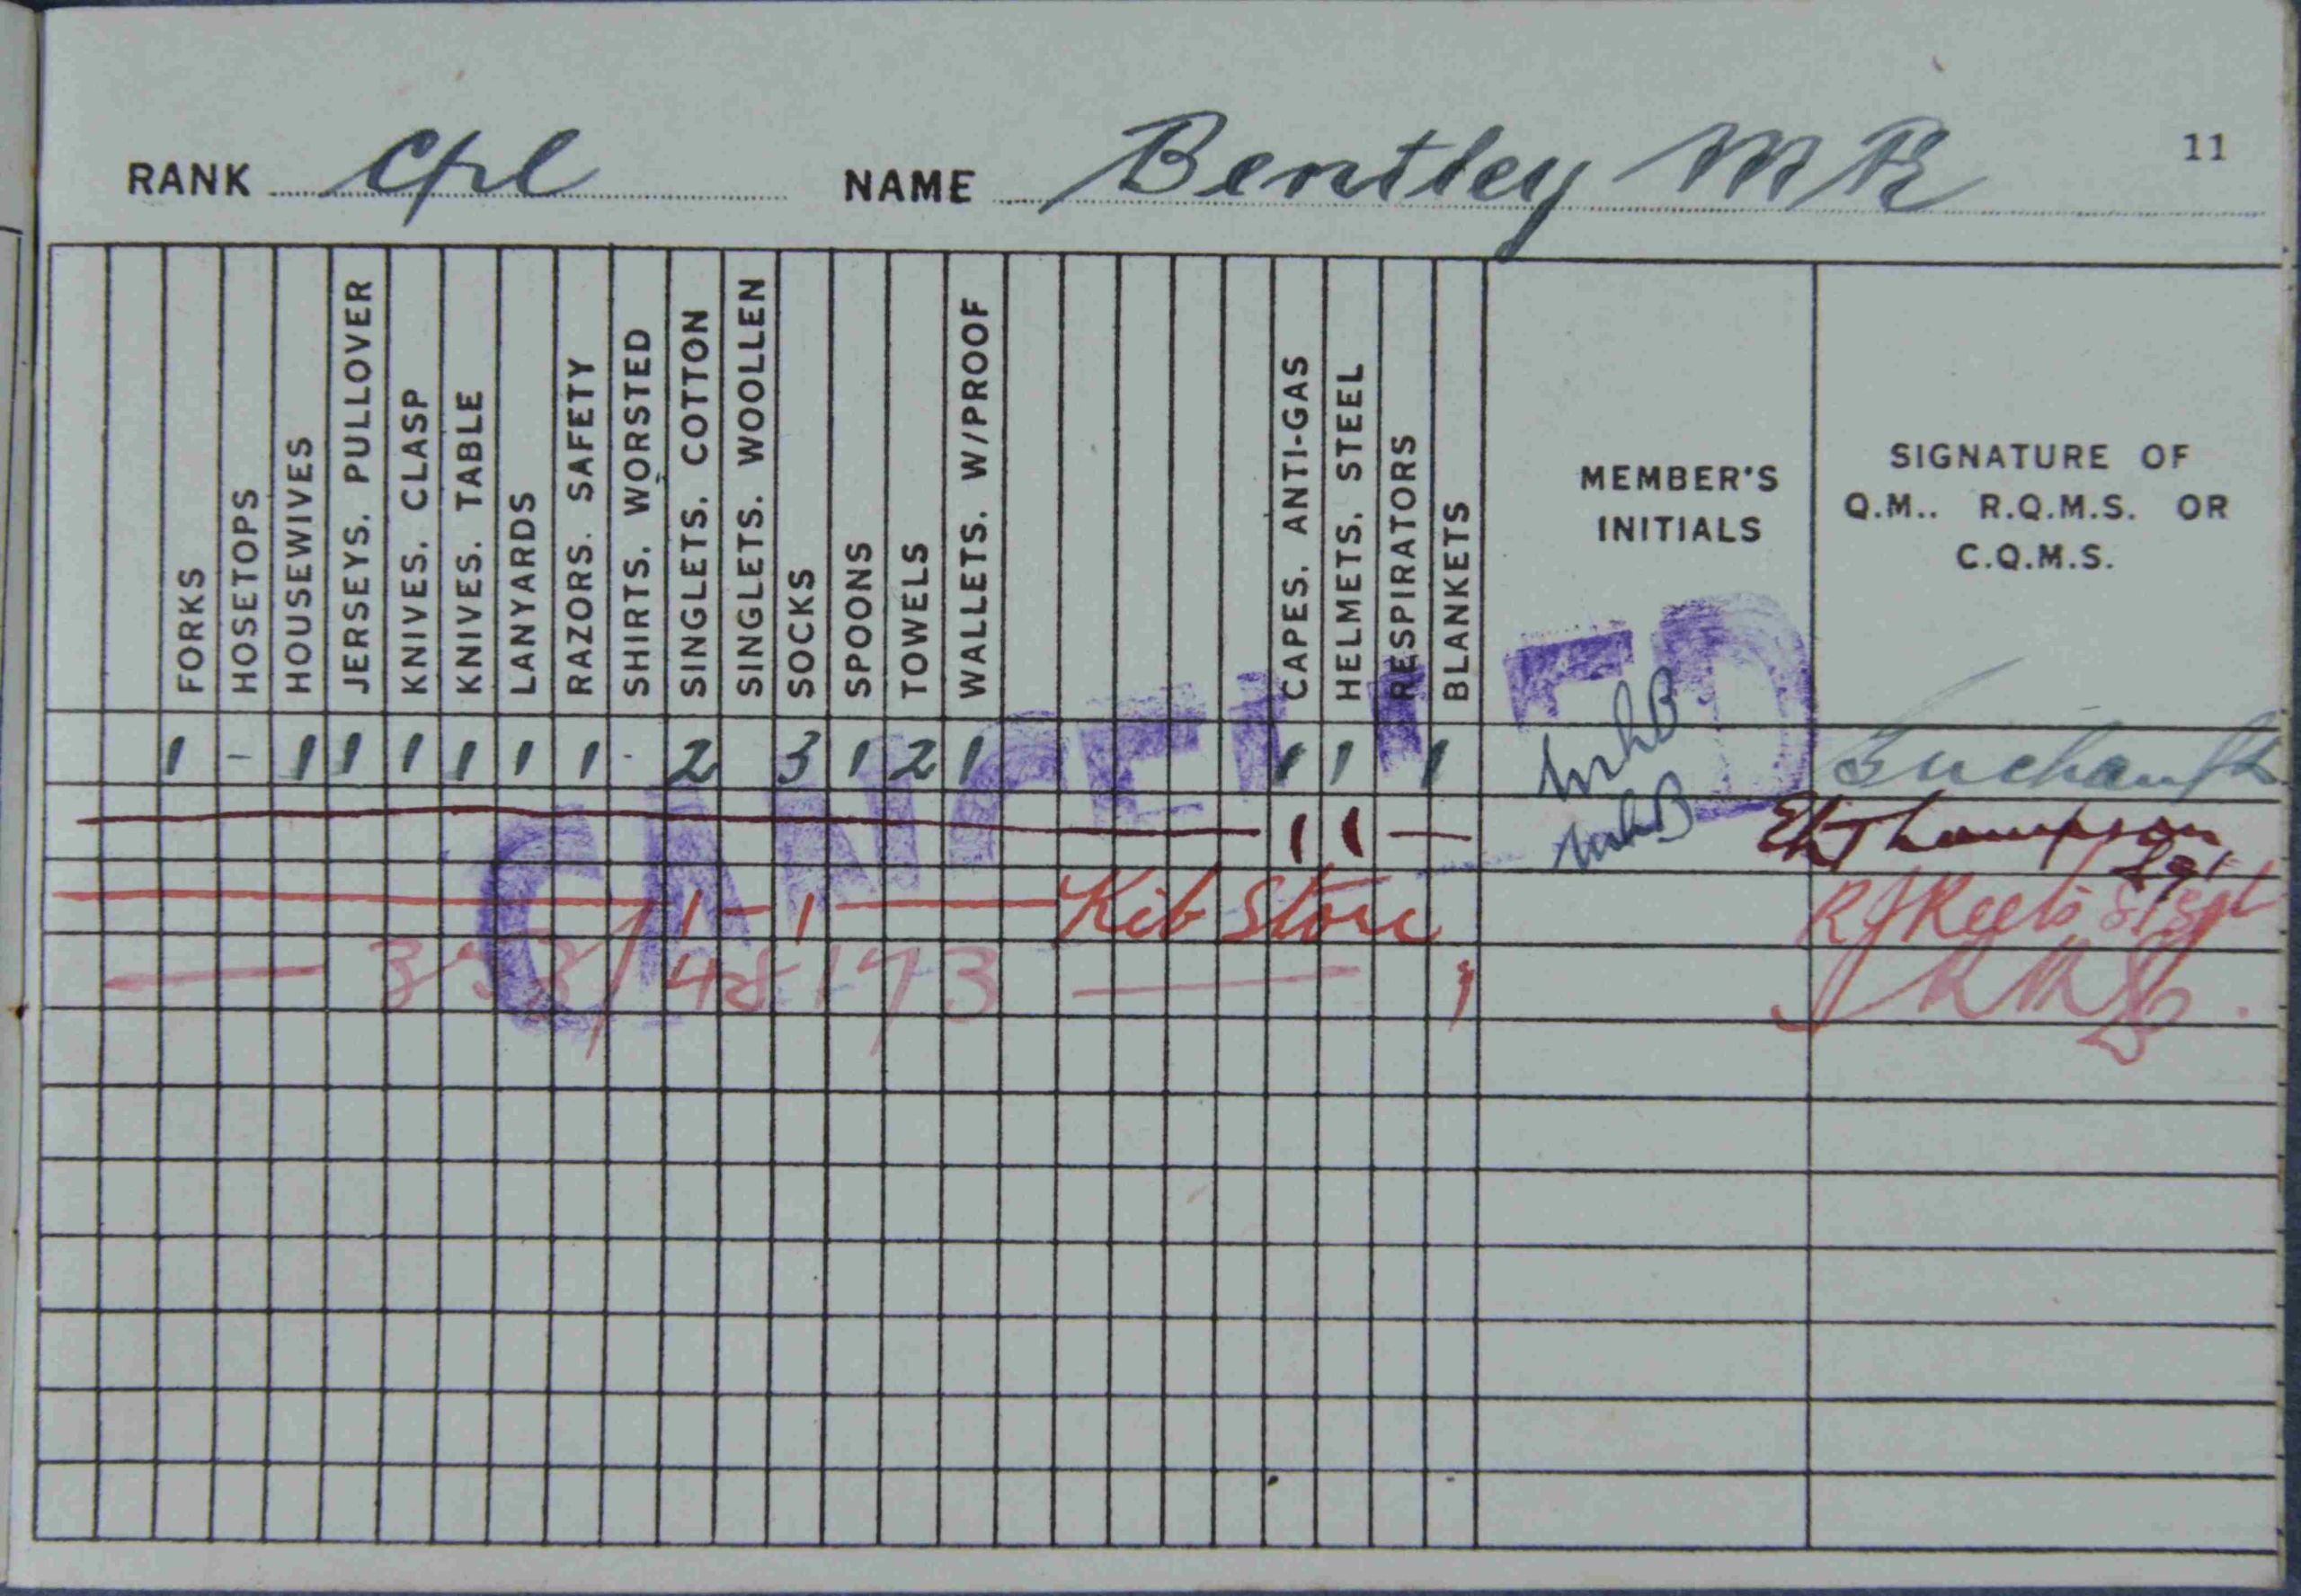 11
RANK Cpl NAME Bentley M R
FORKS
HOSETOPS
HOUSEWIVES
JERSEYS. PULLOVER
KNIVES. CLASP
KNIVES. TABLE
LANYARDS
RAZORS. SAFETY
SHIRTS. WORSTED
SINGLETS. COTTON
SINGLETS. WOOLLEN
SOCKS
SPOONS
TOWELS
WALLETS. W/PROOF
CAPES. ANTI-GAS
HELMETS. STEEL
RESPIRATORS
BLANKETS
MEMBER'S
INITIALS
SIGNATURE OF
Q.M.. R.Q.M.S. OR
C.Q.M.S.
CANCELLED
1 - 1 1 1 1 1 1 - 2 3 1 2 1 1 1 1
1 1 — Thompson Sgt
1 — 1 — Kit Store
1